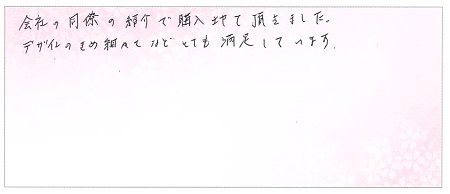 会社の同僚の紹介で購入させて頂きました。
デザインのきめ細かさなどとても満足しています。